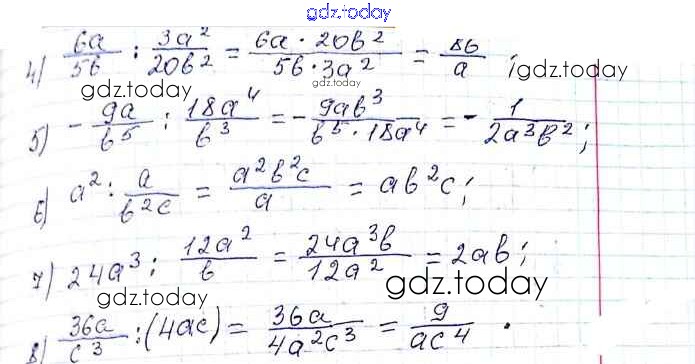 gdz.today
4) 6a/5b : 3a²/20b² = 6a · 20b²/5b · 3a² = 8b/a ; gdz.today
gdz.today
5) - 9a/b⁵ : 18a⁴/b³ = - 9ab³/b⁵ · 18a⁴ = - 1/2a³b² ;
6) a² : a/b²c = a²b²c/a = ab²c ;
7) 24a³ : 12a²/b = 24a³b/12a² = 2ab ;
gdz.today gdz.today
8) 36a/c³ : (4ac) = 36a/4a²c³ = 9/ac⁴ .